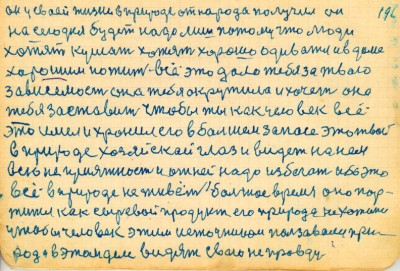 он у своей жизни в природе от народа получил он 196
на сегодня будет надо ли и потому что люди
хотят кушат хотят хорошо одиватися в доме
хорошим по жит всё это дало тебя за твою
зависемост она тебя окрутила и хочет она
тебя заставит чтобы ты как человек всё
это имел и хронил его в болшем запасе это твой
в природе хозяйскай глаз и видет на нём
всю не приятность и от ней надо избегат ибо это
всё в природе не живёт болшое время оно пор
тится как сыревой продукт его природа не хотела
чтобы человек этим источником ползавался при
рода в этом деле видят свою не провду